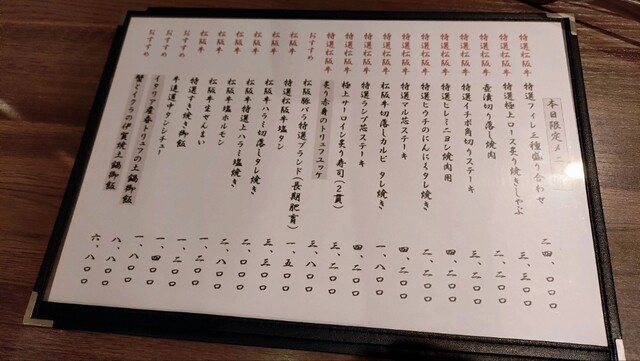 本日限定メニ
特選松阪牛 特選フィレ三種盛り合わせ 二四、〇〇〇
特選松阪牛 特選極上ロース炙り焼きしゃぶ 三、三〇〇
特選松阪牛 壺漬け切り落し焼肉 二、二〇〇
特選松阪牛 特選イチボ角切りステーキ 三、二〇〇
特選松阪牛 特選ヒレミニヨン焼肉用
特選松阪牛 特選ヒウチのにんにくタレ焼き 二、二〇〇
特選松阪牛 特選マル芯ステーキ 四、二〇〇
特選松阪牛 松阪牛切落しカルビ タレ焼き 一、八〇〇
特選松阪牛 特選ランプ芯ステーキ 四、二〇〇
特選松阪牛 極上サーロイン炙り寿司(2貫) 三、二〇〇
おすすめ 炙り赤身のトリュフユッケ 三、八〇〇
松阪牛 特選松阪牛塩タン 一、五〇〇
松阪豚バラ特選ブランド(長期肥育)
松阪牛 松阪牛ハラミ切落しタレ焼き 三、三〇〇
松阪牛 松阪牛特選上ハラミ塩焼き 二、二〇〇
松阪牛 松阪牛塩ホルモン 二、八〇〇
松阪牛 松阪牛生ぜんまい 一、二〇〇
おすすめ 特選すき焼き御飯 一、二〇〇
おすすめ 牛達選牛タンシチュー 一、四〇〇
イタリア産春トリュフの土鍋御飯 八、八〇〇
おすすめ 蟹とイクラの伊賀焼土鍋御飯 六、八〇〇